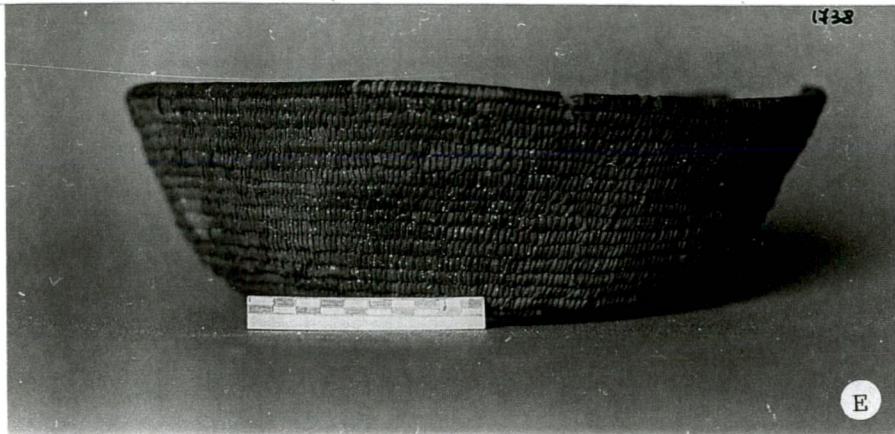 1738
E